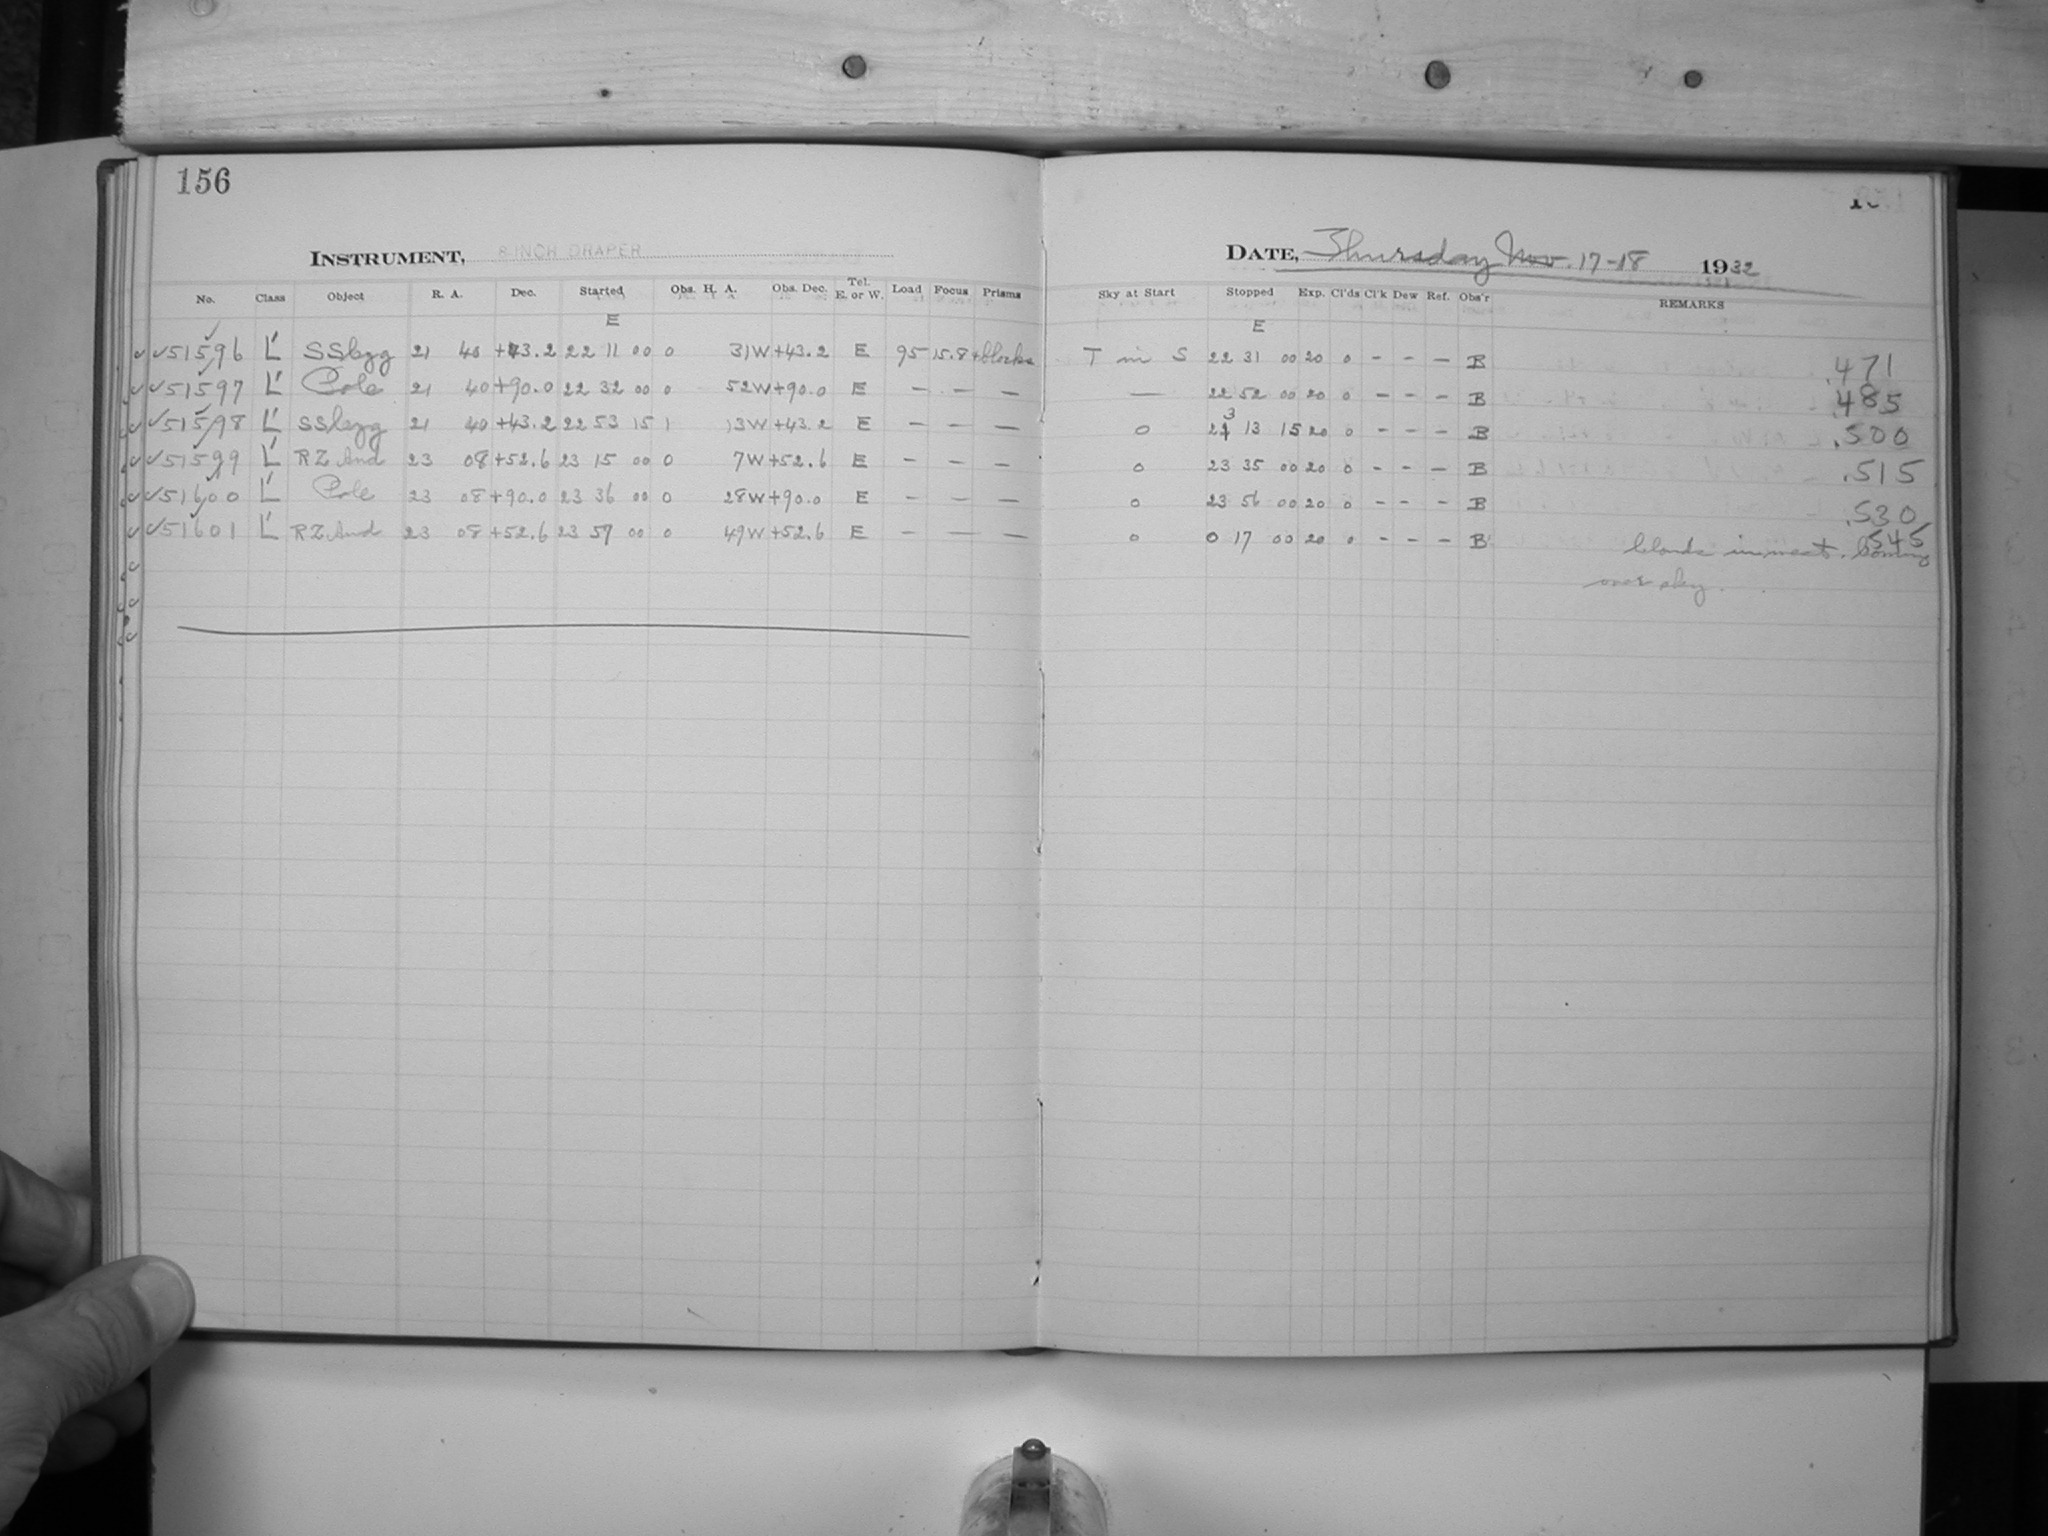 156
INSTRUMENT, 8 INCH DRAPER
No. Class Object R. A. Dec. Started Obs. H. A. Obs. Dec. Tel. E. or W. Load Focus Prisms
E
51596 L SSCygg 21 40 +43.2 22 11 00 0 31W +43.2 E 95 15.8 +blocks
51597 L Pole 21 40 +90.0 22 32 00 0 52W +90.0 E — — —
51598 L SSCygg 21 40 +43.2 22 53 15 1 13W +43.2 E — — —
51599 L RZ And 23 08 +52.6 23 15 00 0 7W +52.6 E — — —
51600 L Pole 23 08 +90.0 23 36 00 0 28W +90.0 E — — —
51601 L RZ And 23 08 +52.6 23 57 00 0 49W +52.6 E — — —
DATE, Thursday Nov. 17-18 1932
Sky at Start Stopped Exp. Cl'ds Cl'k Dew Ref. Obs'r REMARKS
E
T in S 22 31 00 20 0 - - - B .471
— 22 52 00 20 0 - - - B .485
0 23 13 15 20 0 - - - B .500
0 23 35 00 20 0 - - - B .515
0 23 56 00 20 0 - - - B .530
0 0 17 00 20 0 - - - B .545
Clouds in west. Coming
over sky.